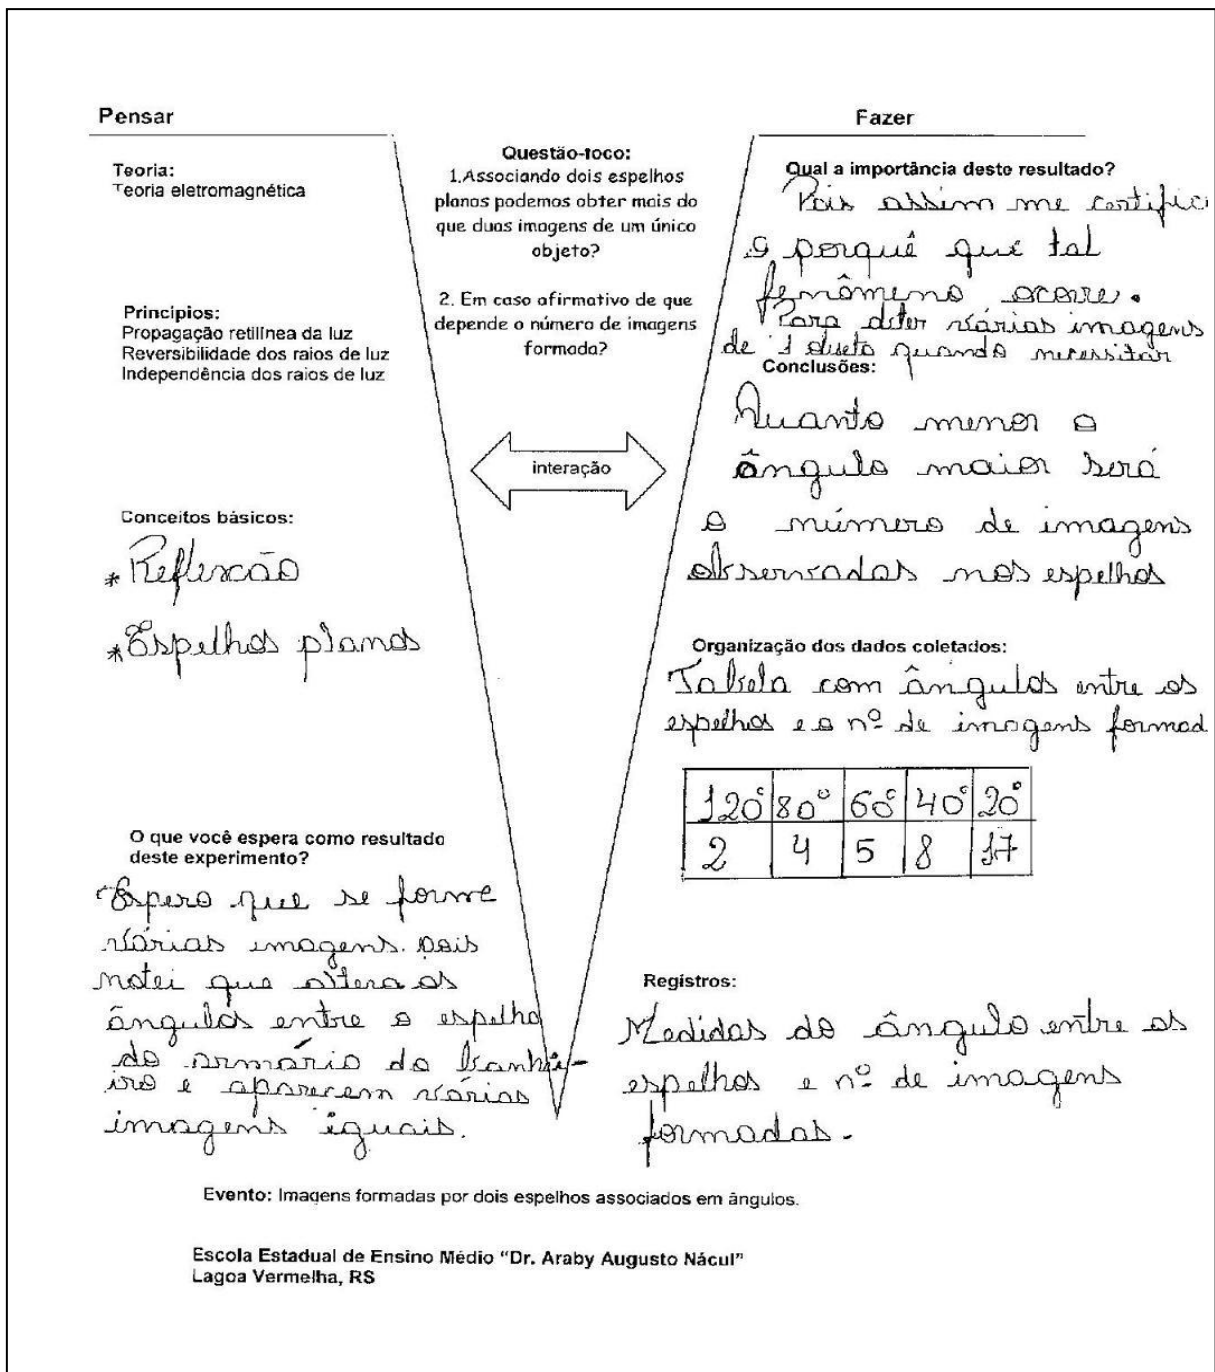 Pensar
Teoria:
Teoria eletromagnética
Princípios:
Propagação retilínea da luz
Reversibilidade dos raios de luz
Independência dos raios de luz
Conceitos básicos:
* Reflexão
* Espelhos planos
O que você espera como resultado
deste experimento?
Espero que se forme
várias imagens. pois
notei que altera os
ângulos entre o espelho
do armário do banhei-
iro e aparecem várias
imagens iguais.
Questão-foco:
1.Associando dois espelhos
planos podemos obter mais do
que duas imagens de um único
objeto?
2. Em caso afirmativo de que
depende o número de imagens
formada?
interação
Fazer
Qual a importância deste resultado?
Pois assim me certific
o porquê que tal
fenômeno ocorre.
Para obter várias imagens
de 1 objeto quando necessitar
Conclusões:
Quanto menor o
ângulo maior será
o número de imagens
observadas nos espelhos
Organização dos dados coletados:
Tabela com ângulos entre os
espelhos e o nº de imagens formad
120° 80° 60° 40° 20°
2 4 5 8 17
Registros:
Medidas do ângulo entre os
espelhos e nº de imagens
formadas.
Evento: Imagens formadas por dois espelhos associados em ângulos.
Escola Estadual de Ensino Médio "Dr. Araby Augusto Nácul"
Lagoa Vermelha, RS